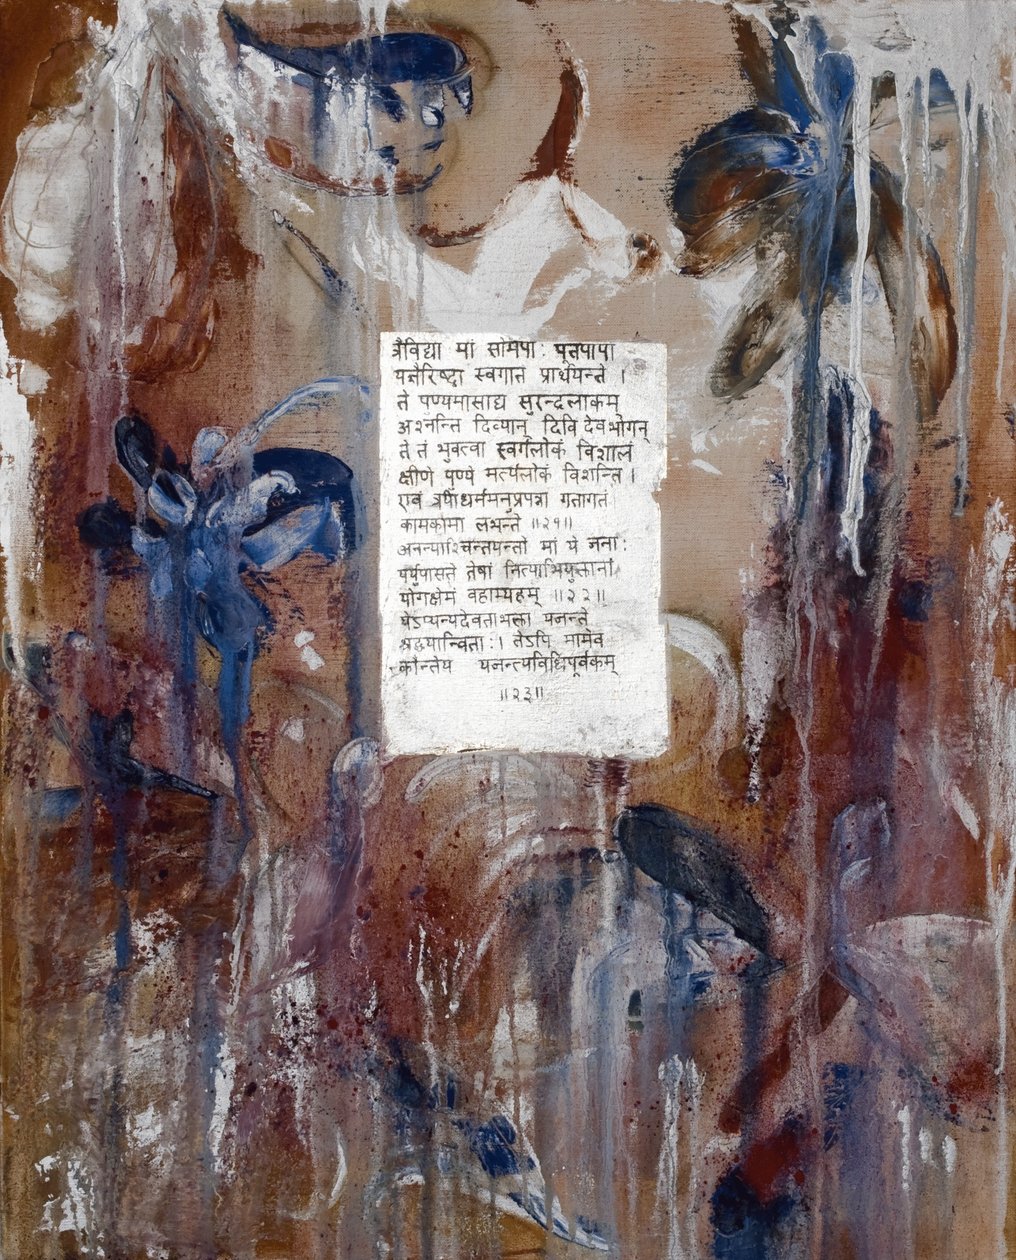 त्रैविद्या मां सोमपाः पूतपापा
यज्ञैरिष्ट्वा स्वगात प्रार्थयन्ते ।
ते पुण्यमासाद्य सुरन्द्रलाकम्
अश्नन्ति दिव्यान् दिवि देवभोगन्
ते तं भुक्त्वा स्वर्गलोकं विशाल
क्षीणे पुण्ये मर्त्यलोकं विशन्ति ।
एवं त्रयीधर्ममनुप्रपन्ना गतागतं
कामकामा लभन्ते ॥२१॥
अनन्याश्चिन्तयन्तो मां ये जनाः
पर्युपासते तेषां नित्याभियुक्तानां
योगक्षेमं वहाम्यहम् ॥२२॥
येऽप्यन्यदेवताभक्ता यजन्ते
श्रद्धयान्विताः। तेऽपि मामेव
कौन्तेय यजन्त्यविधिपूर्वकम्
॥२३॥